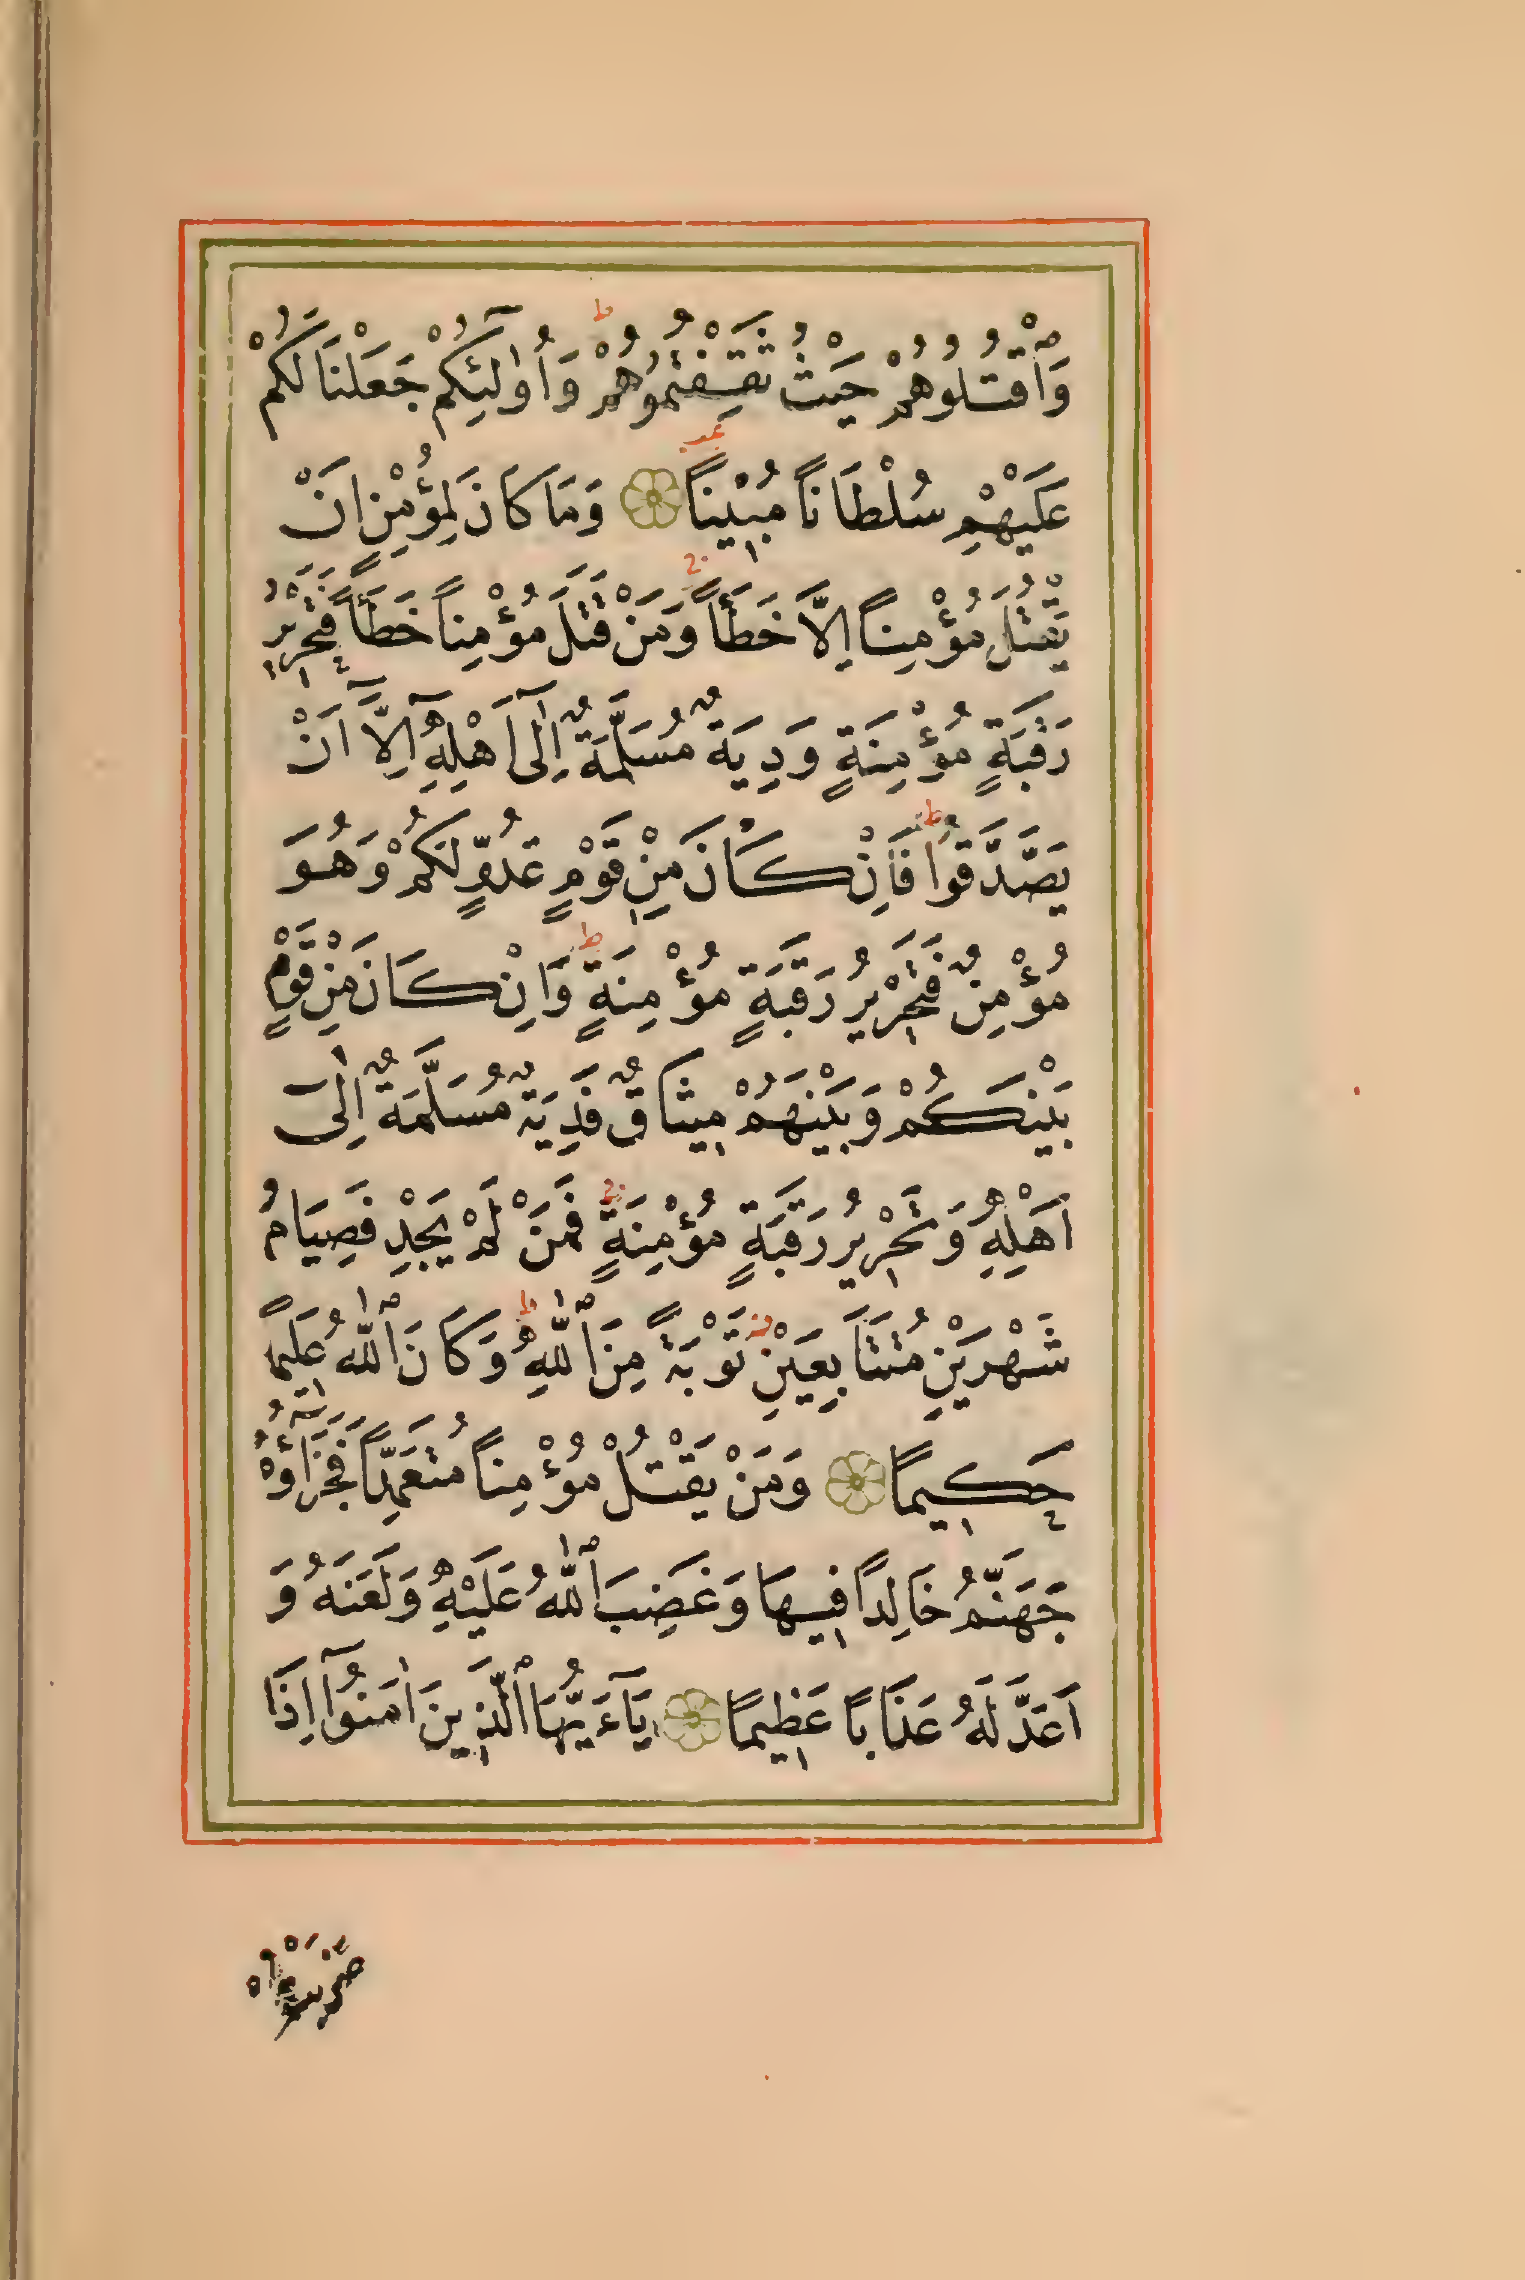 وَٱقْتُلُوهُمْ حَيْثُ ثَقِفْتُمُوهُمْ ط وَاُولٰٓئِكُمْ جَعَلْنَا لَكُمْ
عَلَيْهِمْ سُلْطَانًا مُبِينًا وَمَا كَانَ لِمُؤْمِنٍ اَنْ
يَقْتُلَ مُؤْمِنًا اِلَّا خَطَـًٔا وَمَنْ قَتَلَ مُؤْمِنًا خَطَـًٔا فَتَحْرِيرُ
رَقَبَةٍ مُؤْمِنَةٍ وَدِيَةٌ مُسَلَّمَةٌ اِلٰٓى اَهْلِهِٓ اِلَّٓا اَنْ
يَصَّدَّقُوا ط فَاِنْ كَانَ مِنْ قَوْمٍ عَدُوٍّ لَكُمْ وَهُوَ
مُؤْمِنٌ فَتَحْرِيرُ رَقَبَةٍ مُؤْمِنَةٍ ط وَاِنْ كَانَ مِنْ قَوْمٍ
بَيْنَكُمْ وَبَيْنَهُمْ مِيثَاقٌ فَدِيَةٌ مُسَلَّمَةٌ اِلٰٓى
اَهْلِهِ وَتَحْرِيرُ رَقَبَةٍ مُؤْمِنَةٍ ج فَمَنْ لَمْ يَجِدْ فَصِيَامُ
شَهْرَيْنِ مُتَتَابِعَيْنِ تَوْبَةً مِنَ ٱللّٰهِ ط وَكَانَ ٱللّٰهُ عَلِيمًا
حَكِيمًا وَمَنْ يَقْتُلْ مُؤْمِنًا مُتَعَمِّدًا فَجَزَاؤُهُ
جَهَنَّمُ خَالِدًا فِيهَا وَغَضِبَ ٱللّٰهُ عَلَيْهِ وَلَعَنَهُ وَ
اَعَدَّ لَهُ عَذَابًا عَظِيمًا يَآءَيُّهَا ٱلَّذِينَ اٰمَنُوٓا اِذَا
ضَرَبْتُمْ